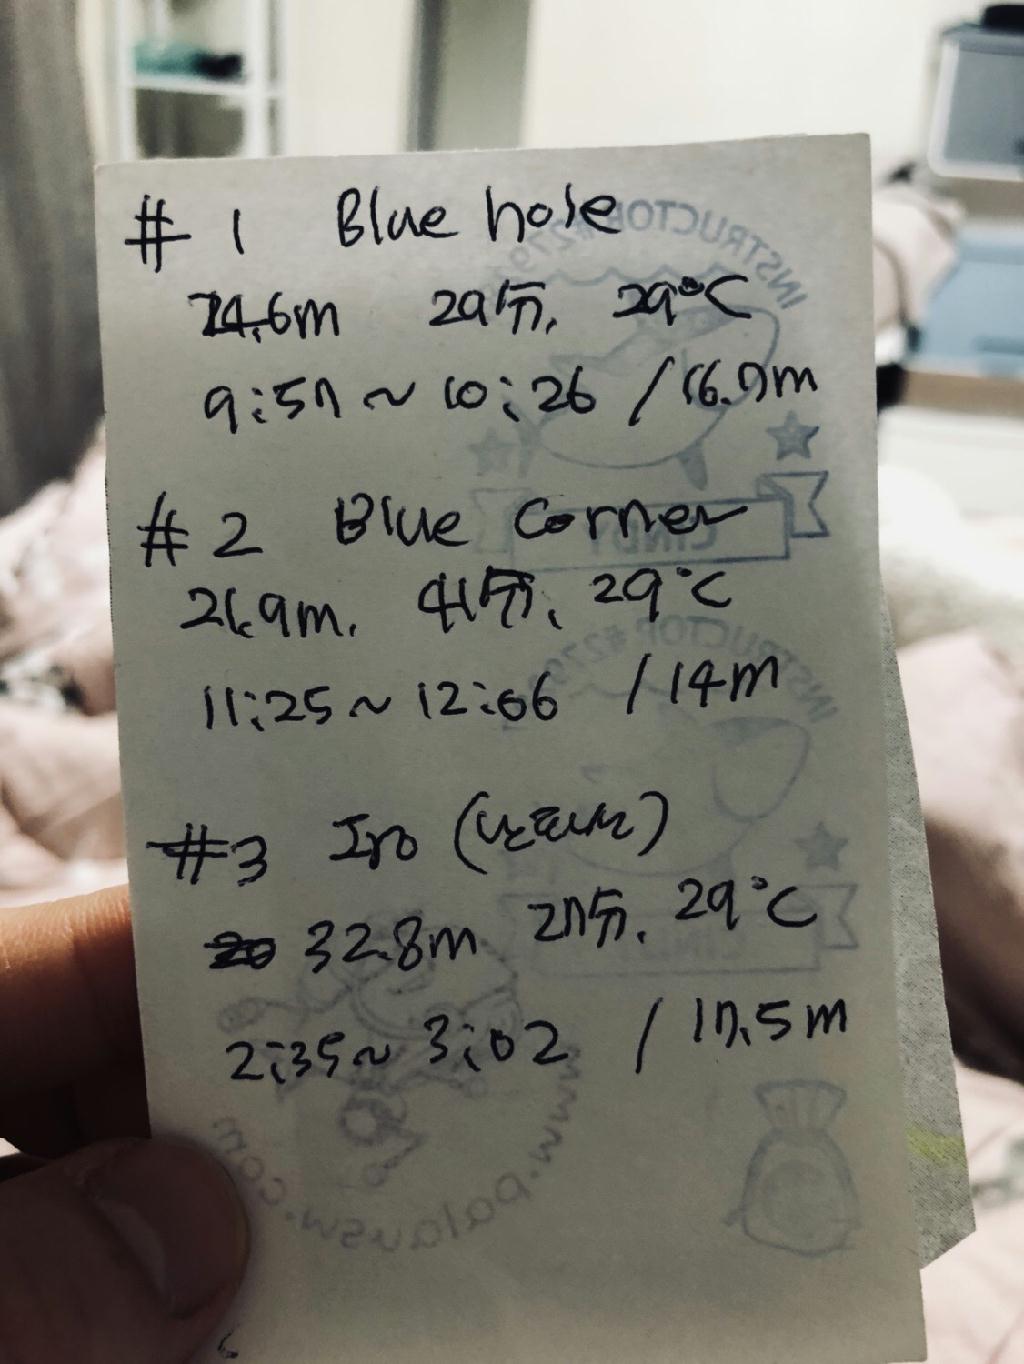 #1 Blue hole
24.6m 29分, 29°C
9:57~10:26 / 16.7m
#2 Blue Corner
26.9m. 41分, 29°C
11:25~12:06 / 14m
#3 Iro (난파선)
32.8m 27分. 29°C
2:35~3:02 / 17.5m
INSTRUCTOR #279
CINDY
INSTRUCTOR #279
CINDY
www.palausw.com